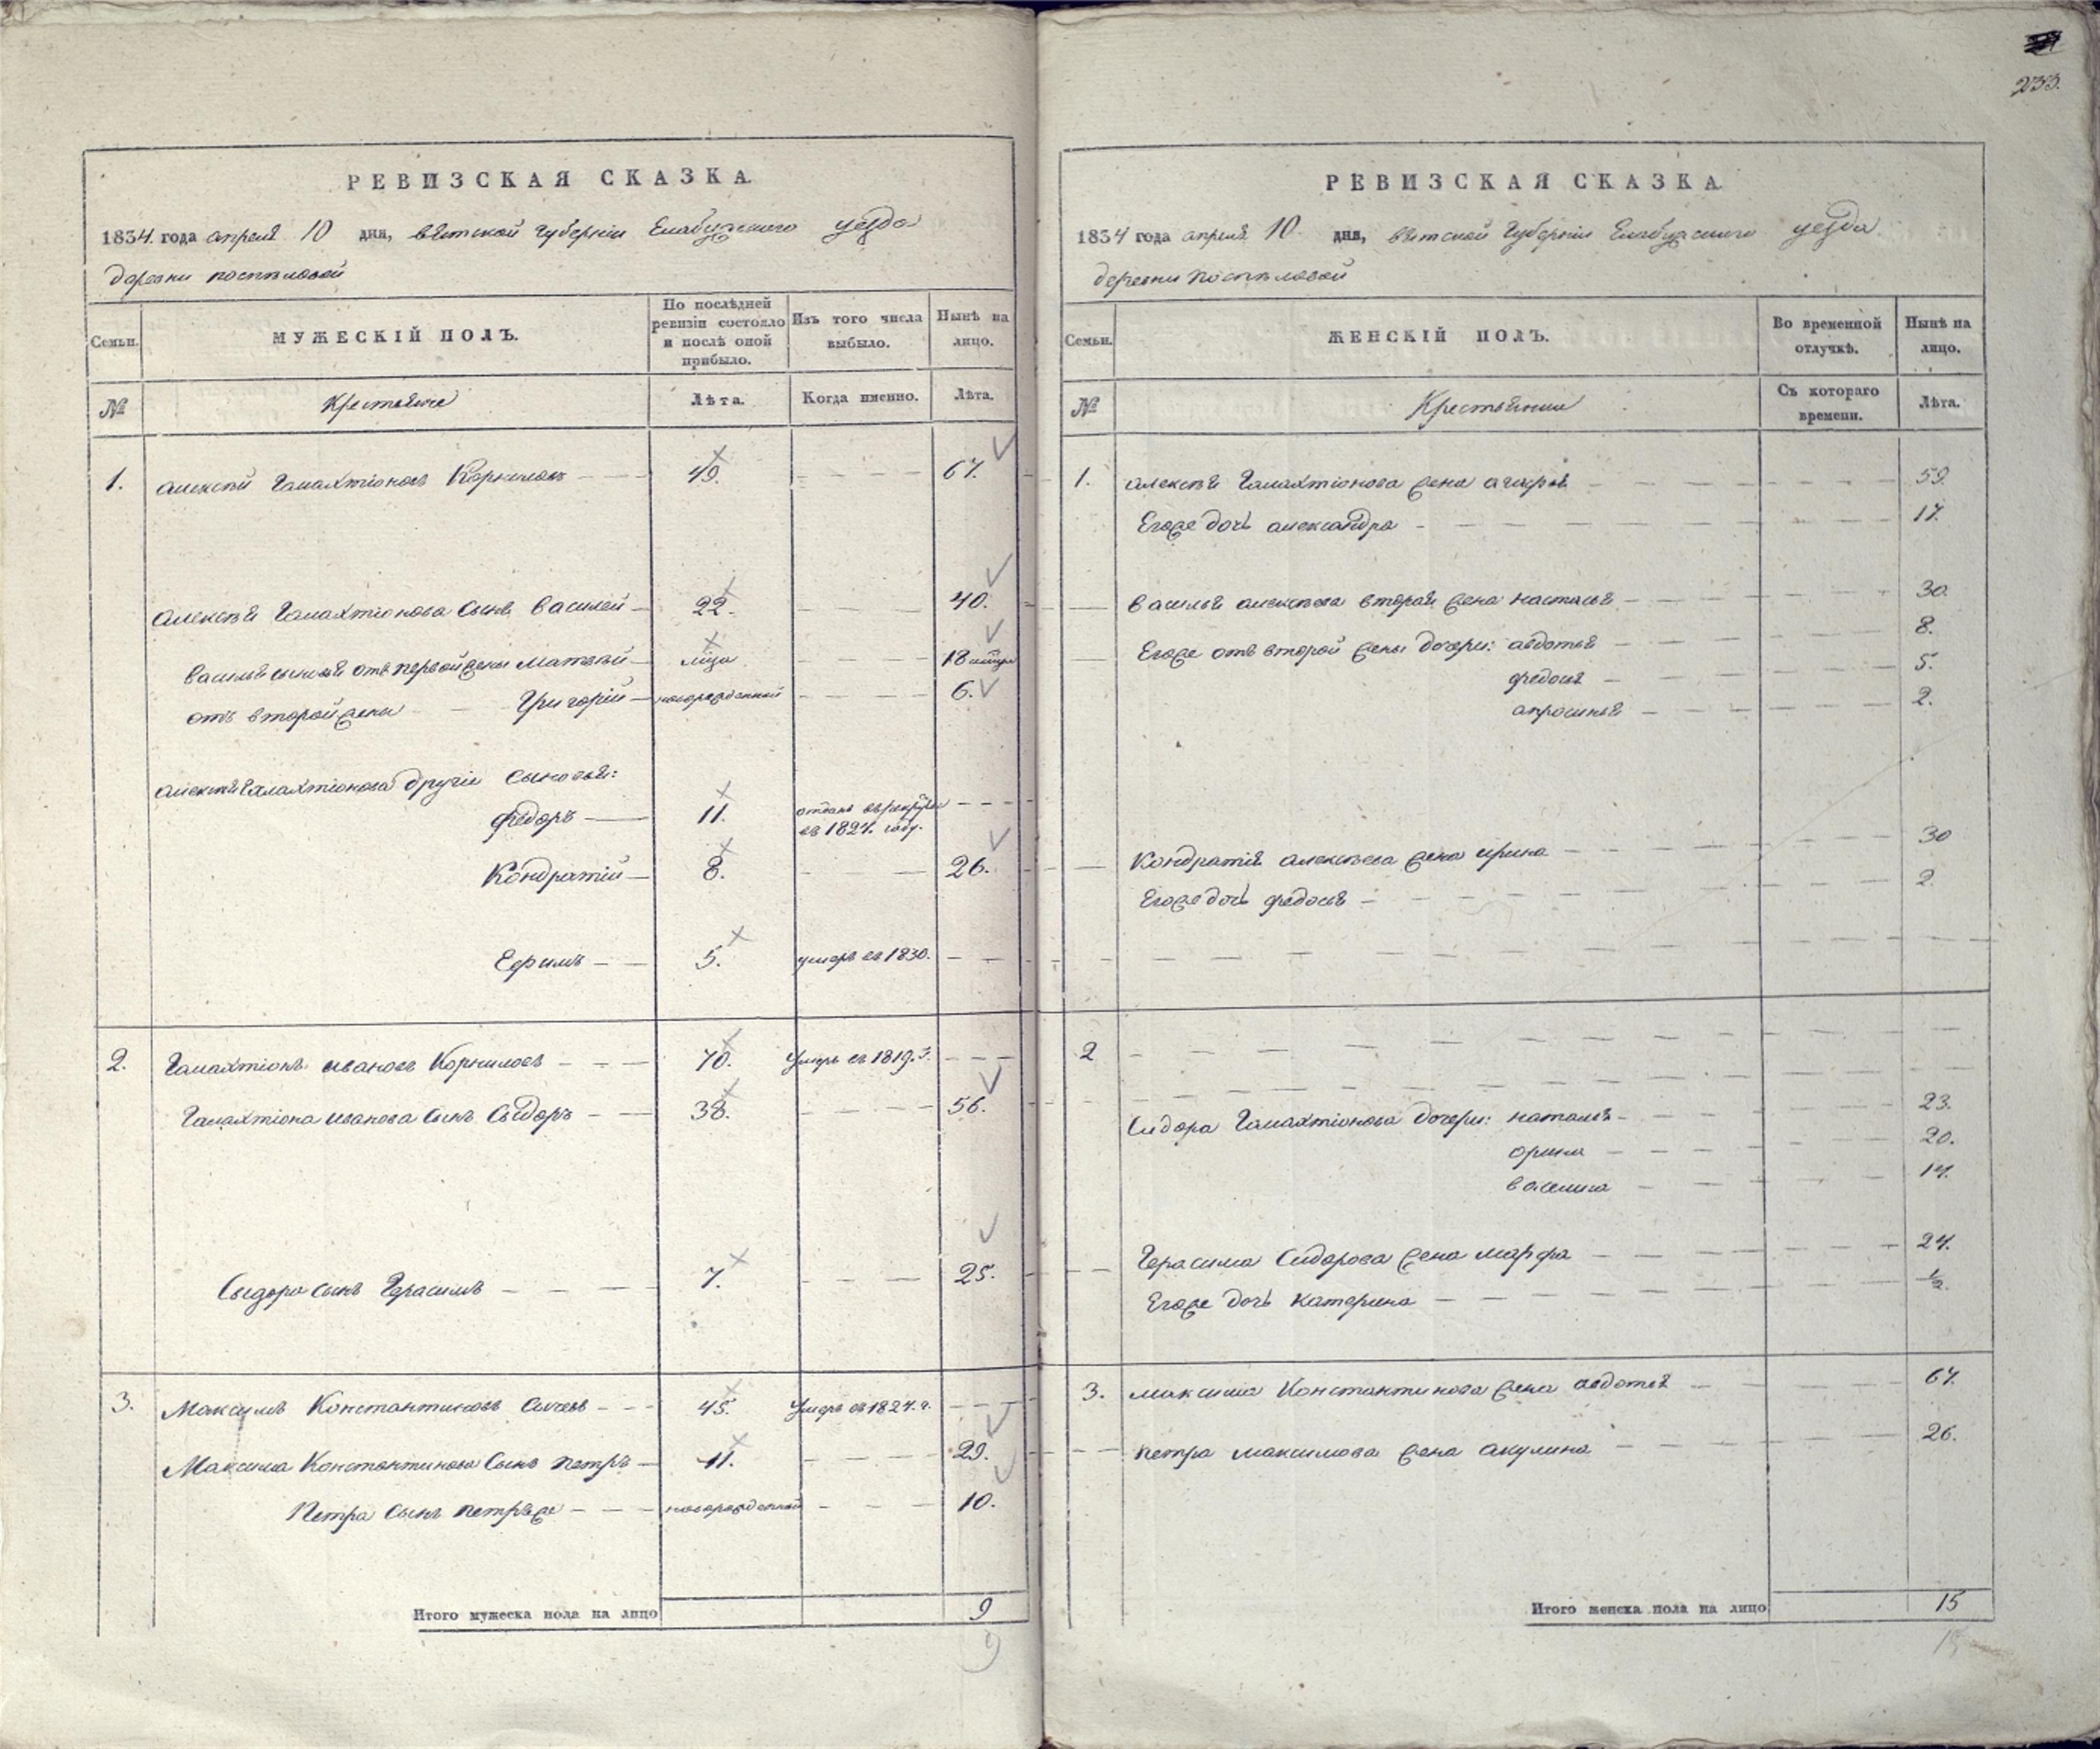 233.
РЕВИЗСКАЯ СКАЗКА.
1834. года апреля 10 дня, вятской губернiи Елабужского уезда
деревни поспѣловой
Семьи.
МУЖЕСКІЙ ПОЛЪ.
По послѣдней ревизіи состояло и послѣ оной прибыло.
Изъ того числа выбыло.
Нынѣ на лицо.
№
Крестьяне
Лѣта.
Когда именно.
Лѣта.
1. алексѣй Галахтіоновъ Корниловъ 49. 67.
алексѣя Галахтіонова сынъ василей 22. 40.
василья сыновья отъ первой жены матвей 18
отъ второй жены Григорій новорожденной 6.
алексѣя Галахтіонова другіе сыновья:
федоръ 11. отданъ въ рекруты
въ 1827. году.
Кондратій 8. 26.
Ефимъ 5. умеръ въ 1830.
2. Галахтіонъ ивановъ Корниловъ 70. Умеръ въ 1819. г.
Галахтіона иванова сынъ Сидоръ 38. 56.
Сидора сынъ Герасимъ 7. 25.
3. Максимъ Константиновъ 45. Умеръ въ 1827. г.
Максима Константинова сынъ петръ 11. 29.
Петра сынъ петръ же новорожденной 10.
Итого мужеска пола на лицо 9
9
РЕВИЗСКАЯ СКАЗКА.
1834 года апреля 10. дня, вятской Губернiи Елабужского уезда
деревни Поспѣловой
Семьи.
ЖЕНСКІЙ ПОЛЪ.
Во временной отлучкѣ.
Нынѣ на лицо.
№
Крестьянки
Съ котораго времени.
Лѣта.
1. алексѣя Галахтіонова жена агафья 59.
Его же дочь александра 17.
василья алексѣева вторая жена настасья 30.
Его же отъ второй жены дочери: авдотья 8.
федосья 5.
апросинья 2.
Кондратія алексѣева жена ирина 30
Его же дочь федосья 2.
2
Сидора Галахтіонова дочери: наталья 23.
орина 20.
василиса 17.
Герасима Сидорова жена марфа 27.
Его же дочь катерина ½.
3. максима Константинова жена авдотья 67.
петра максимова жена акулина 26.
Итого женска пола на лицо 15
15